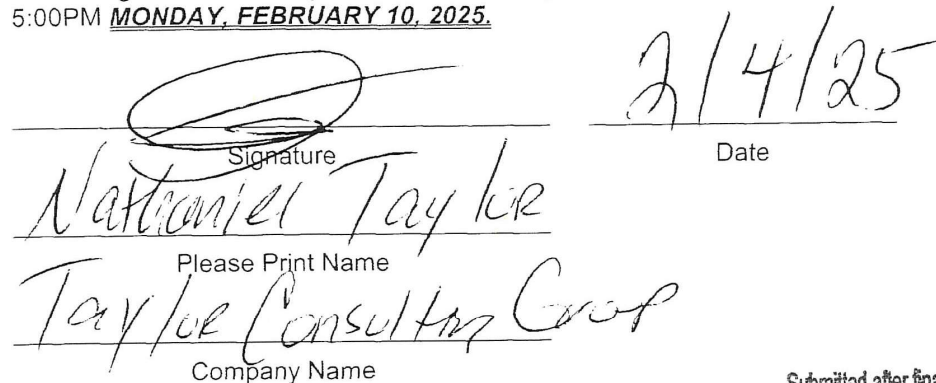 5:00PM MONDAY, FEBRUARY 10, 2025.
2/4/25
Signature
Date
Nathaniel Taylor
Please Print Name
Taylor Consulting Group
Company Name
Submitted after fina